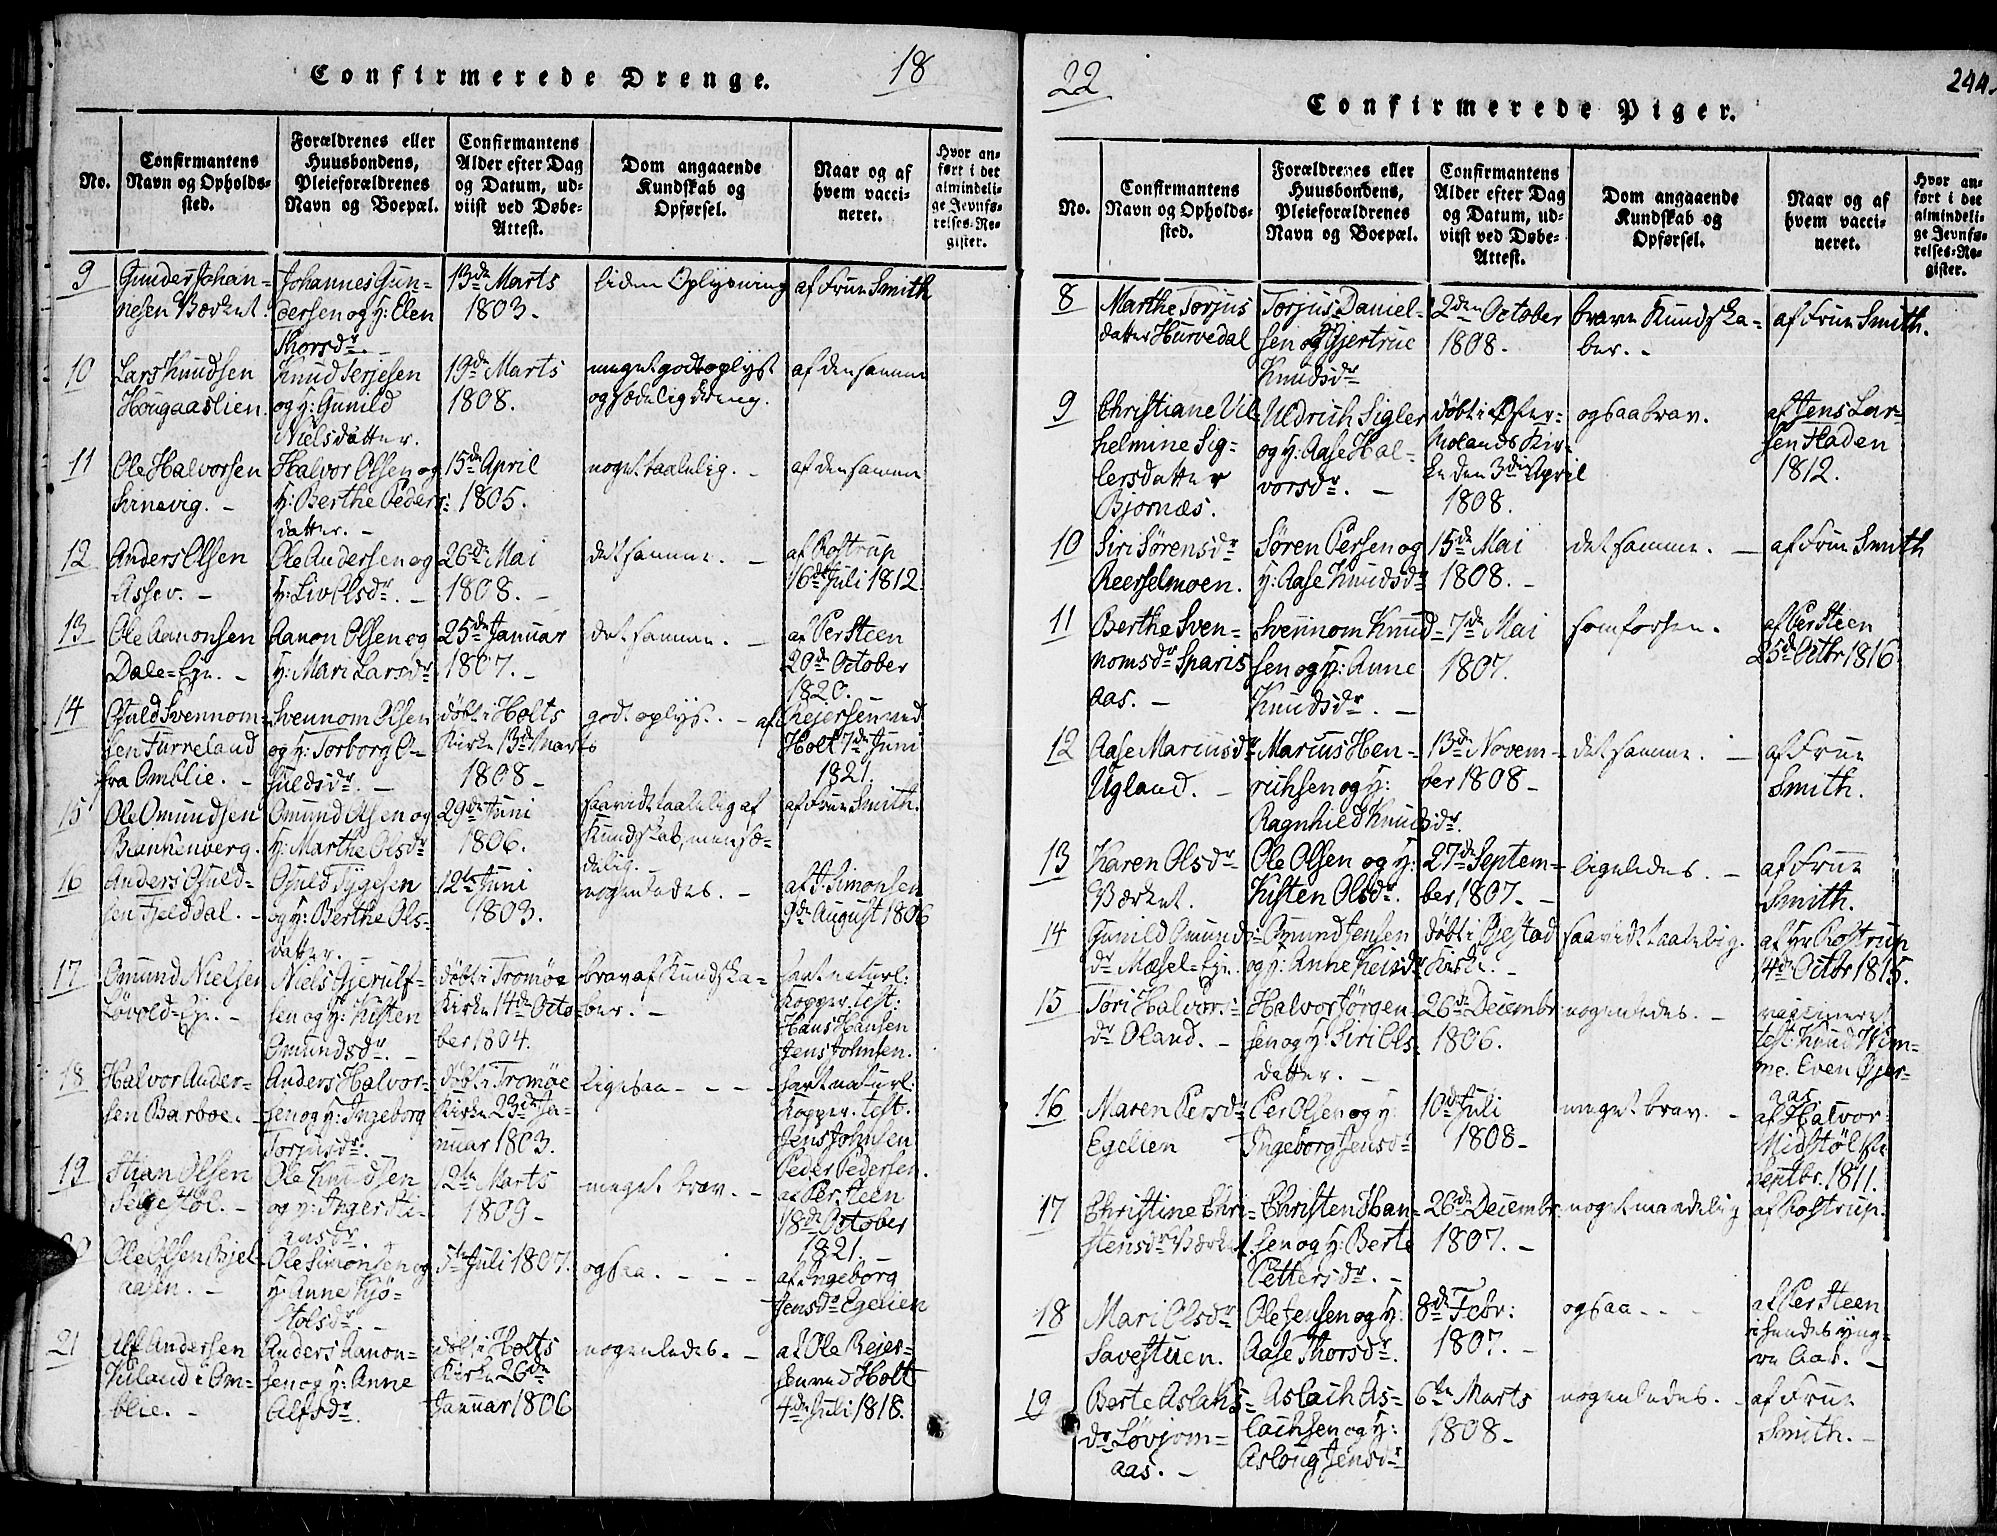 Confirmerede Drenge.
18
No.
Confirmantens
Navn og Opholds-
sted.
Forældrenes eller
Huusbondens,
Pleieforældrenes
Navn og Boepæl.
Confirmantens
Alder efter Dag
og Datum, ud-
viist ved Døbe-
Attest.
Dom angaaende
Kundskab og
Opførsel.
Naar og af
hvem vacci-
neret.
Hvor an-
ført i det
almindeli-
ge Jevnfø-
relses-Re-
gister.
9
Gunder Johan-
nesen Værket.
Johannes Gun-
dersen og H: Elen
Thorsdr. -
13de Marts
1803.
liden Oplysning
af Frue Smith
10
Lars Knudsen
Hougaaslien.
Knud Terjesen
og H: Gunild
Nielsdatter.
19de Marts
1808.
meget godt oplyst
og sædelig Dreng.
af densamme
11
Ole Halvorsen
Svinevig. -
Halvor Olsen og
H: Berthe Peders:
datter. -
15de April
1805.
noget taalelig. -
af densamme
12
Anders Olsen
Assev. -
Ole Andersen og
H: Liv Olsdr. -
26de Mai
1808. -
det samme. -
af Rostrup
16de Juli 1812
13
Ole Aanonsen
Dale=Eje. -
Aanon Olsen og
H: Mari Larsdr
25de Januar
1807. -
det samme. -
af Per Steen
20de October
1820. -
14
Ould Svennom=
sen Furreland
fra Omblie. -
Svennom Olsen
og H: Torborg O-
suldsdr. -
døbt i Holts
Kirke 13de Marts
1808 -
godt oplyst. -
af Rejersen ved
Holt 7de Juni
1821.
15
Ole Omundsen
Blankenberg.
Omund Olsen og
H: Marthe Olsdr
29de Juni
1806.
saavidt taalelig af
Kundskab, men sæ-
delig.
af Frue Smith.
16
Anders Osuld-
sen Fjelddal. -
Osuld Tygesen
og H: Berthe Ols-
datter.
12te Juni
1803.
nogenledes. -
af J. Simonsen
9de August 1806
17
Omund Nielsen
Løvold=Eje. -
Niels Gjerulf-
sen og H: Kisten
Omundsdr. -
døbt i Tromøe
Kirke 14de Octo-
ber 1804.
brav af Kundska-
ber. -
havt naturl:
Kopper. test:
Hans Hansen
Jens Johnsen.
18
Halvor Ander-
sen Barboe. -
Anders Halvor-
sen og H: Ingeborg
Torjusdr. -
døbt i Tromøe
Kirke 23de Ja-
nuar 1803.
ligesaa - - -
havt naturl:
Kopper. test.
Jens Johnsen
Peder Pedersen.
19
Stian Olsen
Selgestøl. -
Ole Knudsen
og H: Inger Sti-
ansdr. -
12te Marts
1809 -
meget brav. -
af Per Steen
18de October
1821. -
20
Ole Olsen Bjel-
aasen. -
Ole Simonsen og
H: Anne Kjø-
stolsdr. -
5te Juli 1807.
ogsaa. - - -
af Ingeborg
Jensdr Egelien
21
Alf Andersen
Vuland i Om-
blie. -
Anders Aanon-
sen og H: Anne
Alfsdr.
døbt i Holts
Kirke 26de
Januar 1806
nogenledes. -
af Ole Rejer-
sen ved Holt
4de Juli 1818.
22
244.
Confirmerede Piger.
No.
Confirmantens
Navn og Opholds-
sted.
Forældrenes eller
Huusbondens,
Pleieforældrenes
Navn og Boepæl.
Confirmantens
Alder efter Dag
og Datum, ud-
viist ved Døbe-
Attest.
Dom angaaende
Kundskab og
Opførsel.
Naar og af
hvem vacci-
neret.
Hvor an-
ført i det
almindeli-
ge Jevnfø-
relses-Re-
gister.
8
Marthe Torjus
datter Hurvedal
Torjus Daniel-
sen og Gjertrue
Knudsdr
2den October
1808.
brave Kundska-
ber. -
af Frue Smith.
9
Christiane Vil
helmine Sig-
lersdatter
Bjornæs.
Uldrich Sigler
og H: Aase Hal-
vorsdr. -
døbt i Øster-
Molands Kir-
ke den 3die April
1808.
ogsaa brav.
af Jens Lar-
sen Staden
1812.
10
Siri Sørensdr
Reerselmoen.
Søren Persen og
H: Aase Knudsdr
15de Mai
1808. -
det samme. -
af Frue Smith
11
Berthe Sven-
nomsdr Sparis
aas. -
Svennom Knud-
sen og H: Anne
Knudsdr. -
7de Mai
1807.
som forsen.
af Per Steen
25de Octbr 1816
12
Aase Mariusdr
Ugland. -
Marius Hen-
richsen og H:
Ragnhild Knudsdr.
13de Novem-
ber 1808 -
det samme. -
af Frue
Smith.
13
Karen Olsdr
Værket.
Ole Olsen og H:
Kisten Olsdr.
27de Septem-
ber 1807. -
ligeledes. -
af Frue
Smith.
14
Gunild Omunds-
dr Mæsel=Eje. -
Omund Jensen
og H: Anne Keisdr
døbt i Gjestad
Kirke. -
saavidt taalelig.
af Hr Rostrup
4de Octbr 1815.
15
Tøri Halvor:
dr Oland. -
Halvor Jørgen-
sen og H: Siri Ols-
datter. -
26de Decembr
1806.
nogenledes. -
vaccineret
test: Knud Vim-
me. Even Øjer-
aas
16
Maren Persdr
Egelien
Per Olsen og H:
Ingeborg Jensdr
10de Juli
1808 -
meget brav. -
af Halvor
Midstøl
Septbr. 1811.
17
Christine Chri-
stensdr Værket.
Christen Han-
sen og H: Berte
Pettersdr. -
26de Decembr
1807. -
noget maadelig
af Rostrup.
18
Mari Olsdr
Savestuen.
Ole Jensen og H:
Aase Thorsdr.
8de Febr:
1807. -
ogsaa - - -
af Per Steen
i hendes yng-
re Aar. -
19
Berte Aslaks-
dr Løvjom-
aas. -
Aslach As-
lachsen og H:
Asloug Jensdr
6te Marts
1808 -
nogenledes. -
af Frue
Smith. -